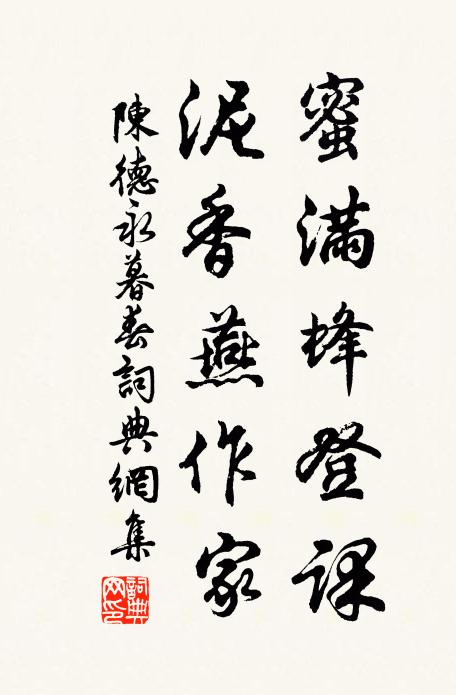 蜜滿蜂登課
泥香燕作家
陳德永暮春詞典網集
詞典網印